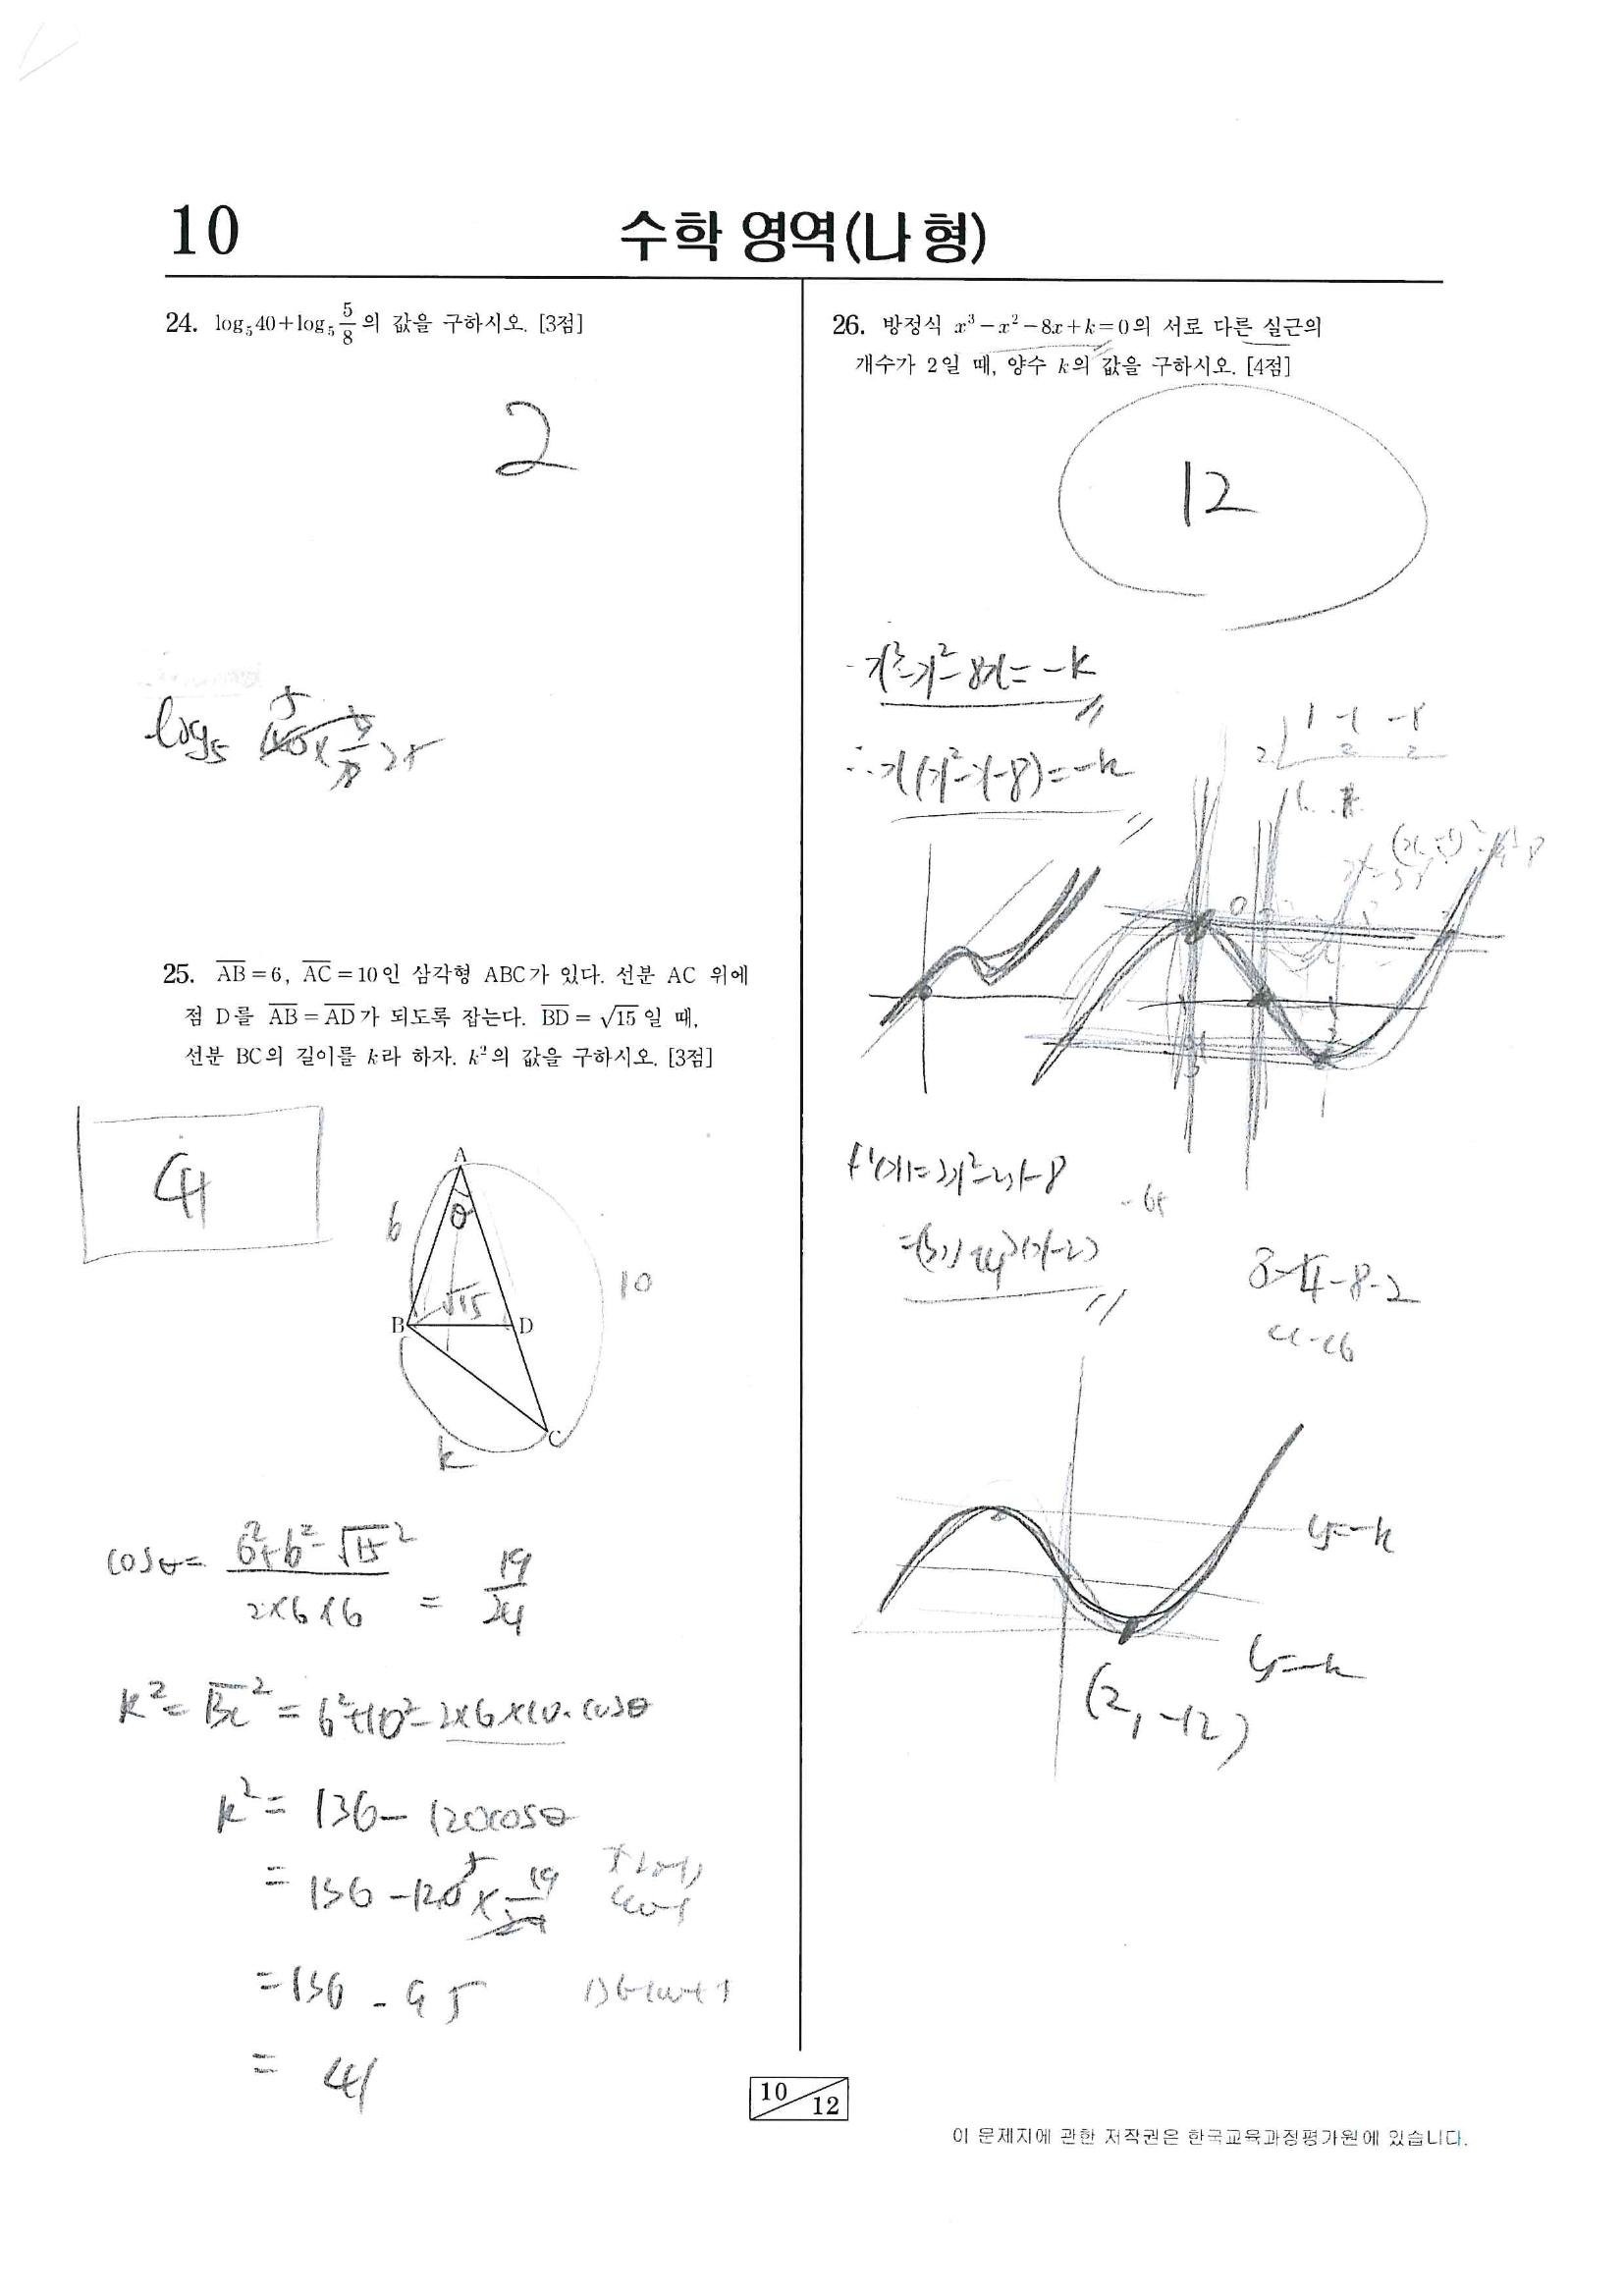 10
수학 영역(나 형)
24. log₅40+log₅5/8의 값을 구하시오. [3점]
2
log₅
25. AB=6, AC=10인 삼각형 ABC가 있다. 선분 AC 위에
점 D를 AB=AD가 되도록 잡는다. BD=√15일 때,
선분 BC의 길이를 k라 하자. k²의 값을 구하시오. [3점]
41
A
θ
6
10
√15
B
D
C
k
cosθ= (6²+6²-√15²)/(2×6×6) = 19/24
k²=BC²=6²+10²-2×6×10·cosθ
k²=136-120cosθ
=136-120×19/24
5
=136-95
= 41
26. 방정식 x³-x²-8x+k=0의 서로 다른 실근의
개수가 2일 때, 양수 k의 값을 구하시오. [4점]
12
x³-x²-8x=-k
∴x(x²-x-8)=-k
f'(x)=3x²-2x-8
=(3x+4)(x-2)
y=-k
y=-k
(2,-12)
10
12
이 문제지에 관한 저작권은 한국교육과정평가원에 있습니다.